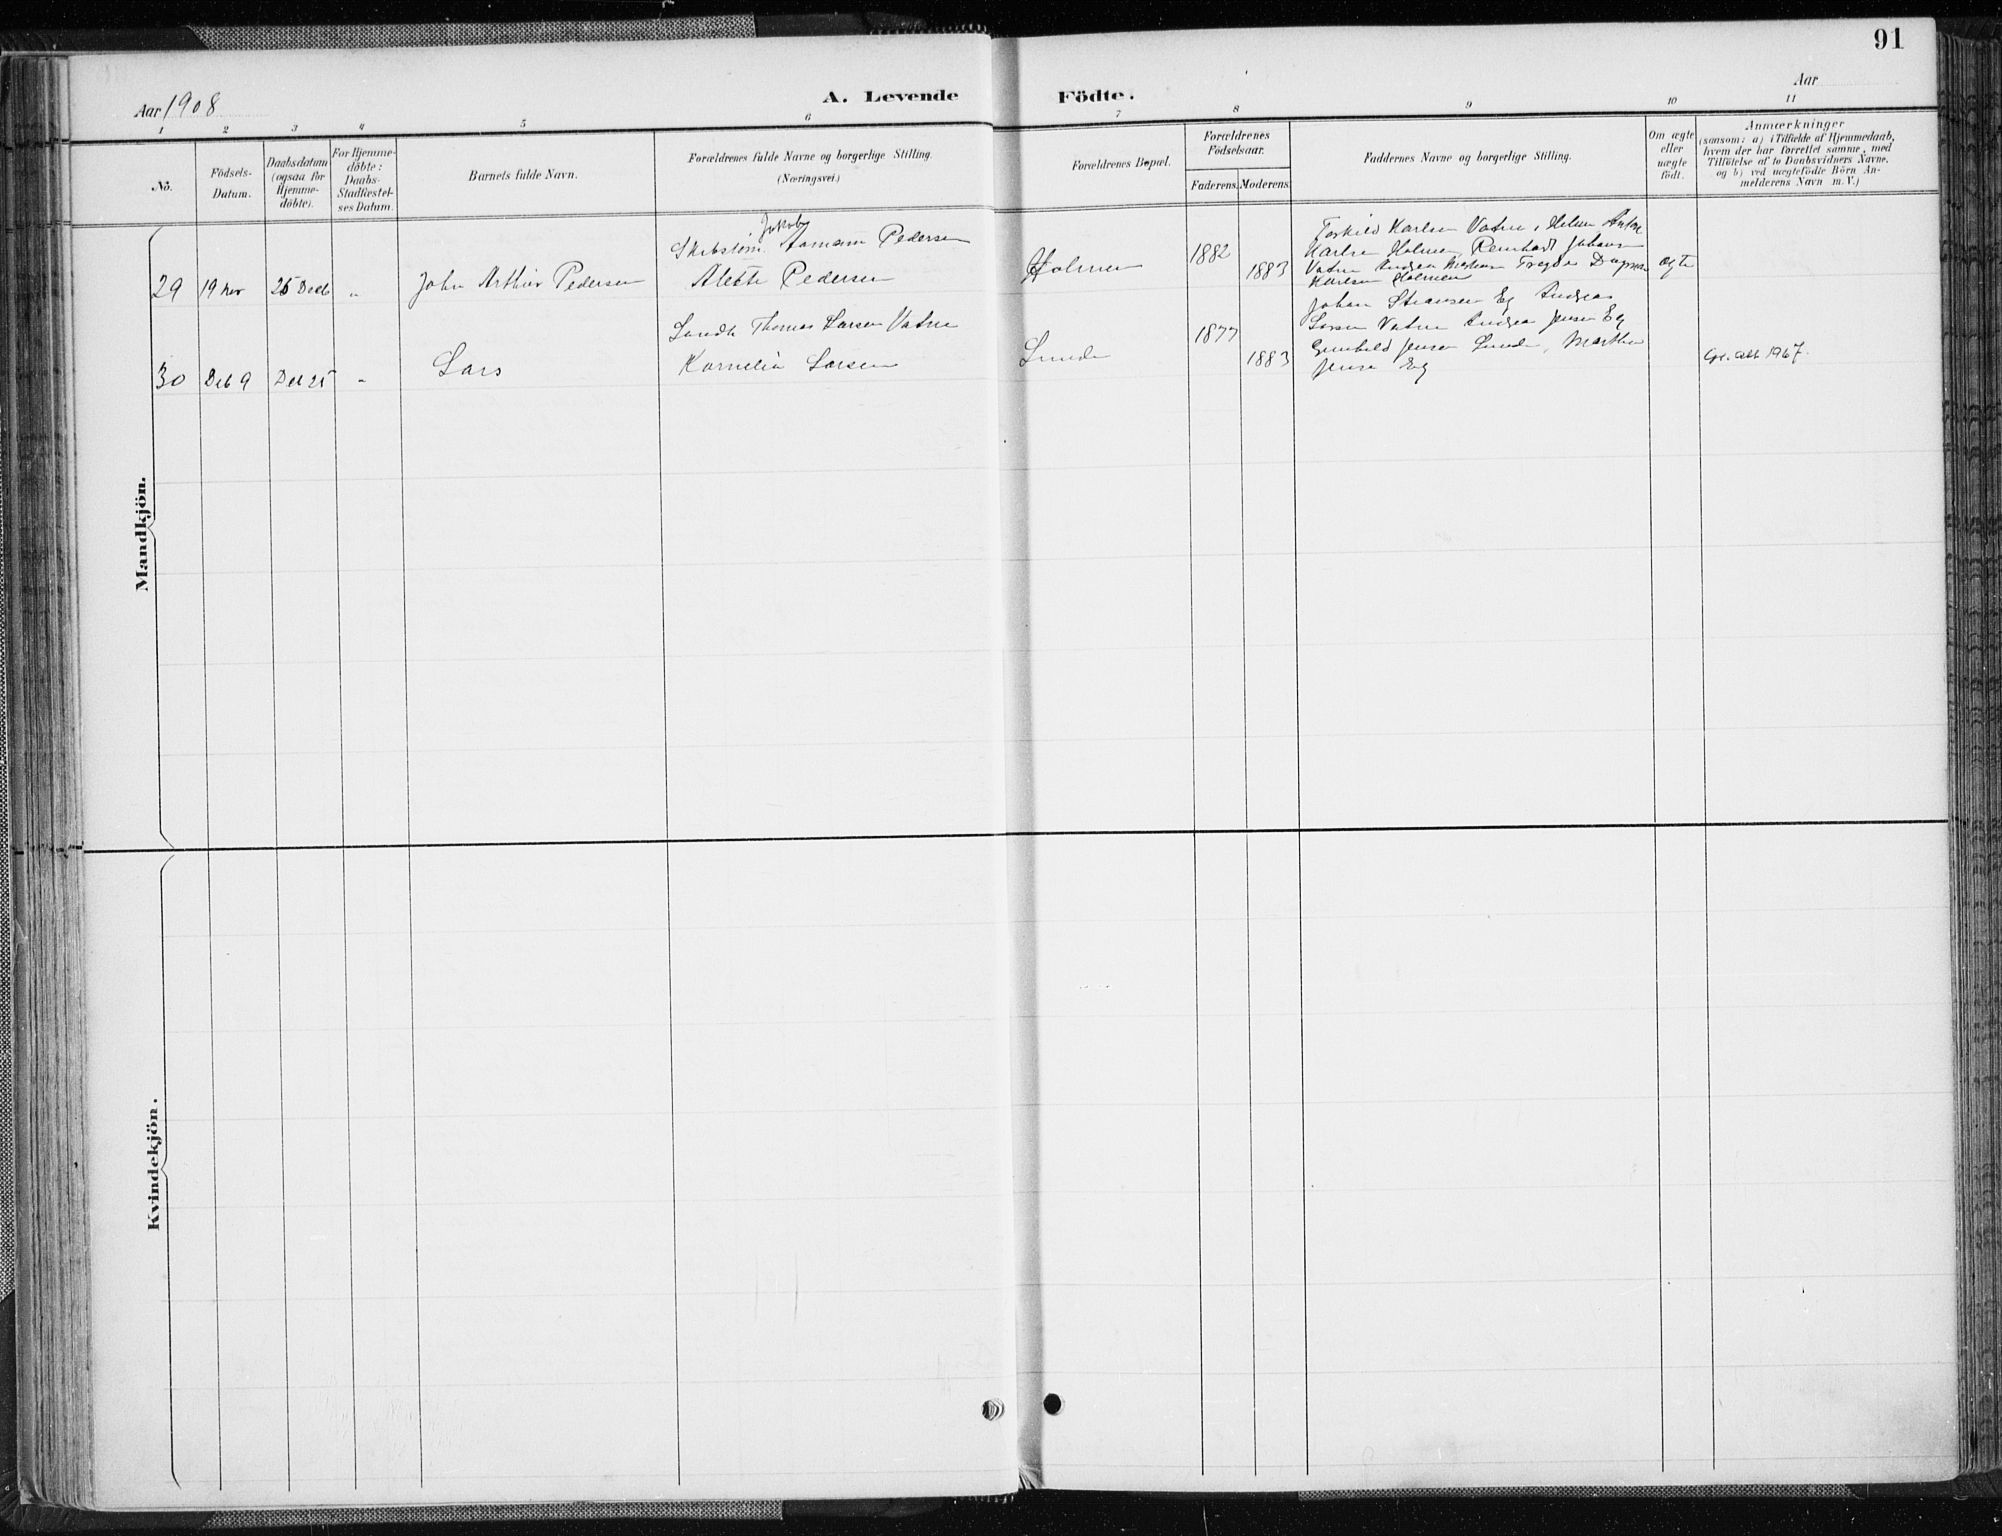 91
Aar 1908
A. Levende Födte.
Aar
1 2 3 4 5 6 7 8 9 10 11
No.
Födsels-
Datum.
Daabsdatum
(ogsaa for
Hjemme-
döbte).
For Hjemme-
döbte:
Daabs-
Stadfæstel-
ses Datum.
Barnets fulde Navn.
Forældrenes fulde Navne og borgerlige Stilling.
(Næringsvei.)
Forældrenes Bopæl.
Forældrenes
Födselsaar.
Faderens.
Moderens.
Faddernes Navne og borgerlige Stilling.
Om ægte
eller
uægte
födt.
Anmærkninger
(saasom: a) i Tilfælde af Hjemmedaab,
hvem der har forrettet samme, med
Tilföielse af to Daabsvidners Navne.
og b) ved uægtefödte Börn An-
melderens Navn m. V.)
Mandkjön.
29
19 Nov
25 Decb
"
John Arthur Pedersen
Jakob
Aamann Pedersen
Pedersen
Holmen
1882
1883
Torkild Karlsen Vatne, Anton
Karlsen Holmen, Reinhard Johans
Vatne Andrea
Karlsen Holmen
ægte
30
Deb 9
Deb 25
"
Lars
Thomas Larsen Vatne
Kornelia Larsen
Lunde
1877
1883
Johan Eg Andreas
Larsen Vatne Andrea Jensen Eg
Gunhild Jensen Lunde, Marthe
Jensen Eg
att 1967.
Kvindekjön.